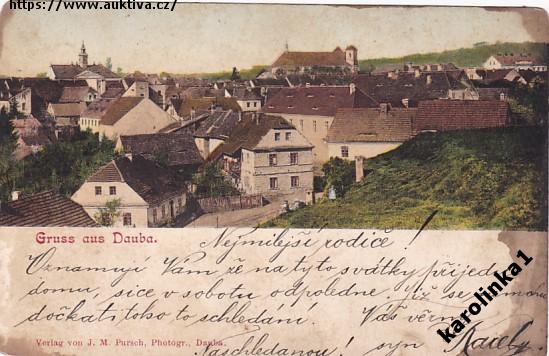 https://www.auktiva.cz/
Gruss aus Dauba.
Nejmilejší rodiče!
Oznamuji Vám že na tyto svátky přijedu
domů, sice v sobotu odpoledne. Již se
dočkati toho to shledání. Váš věrný
syn Karel
Verlag von J. M. Pursch, Photogr., Dauba.
Naschledanou!
karolinka1